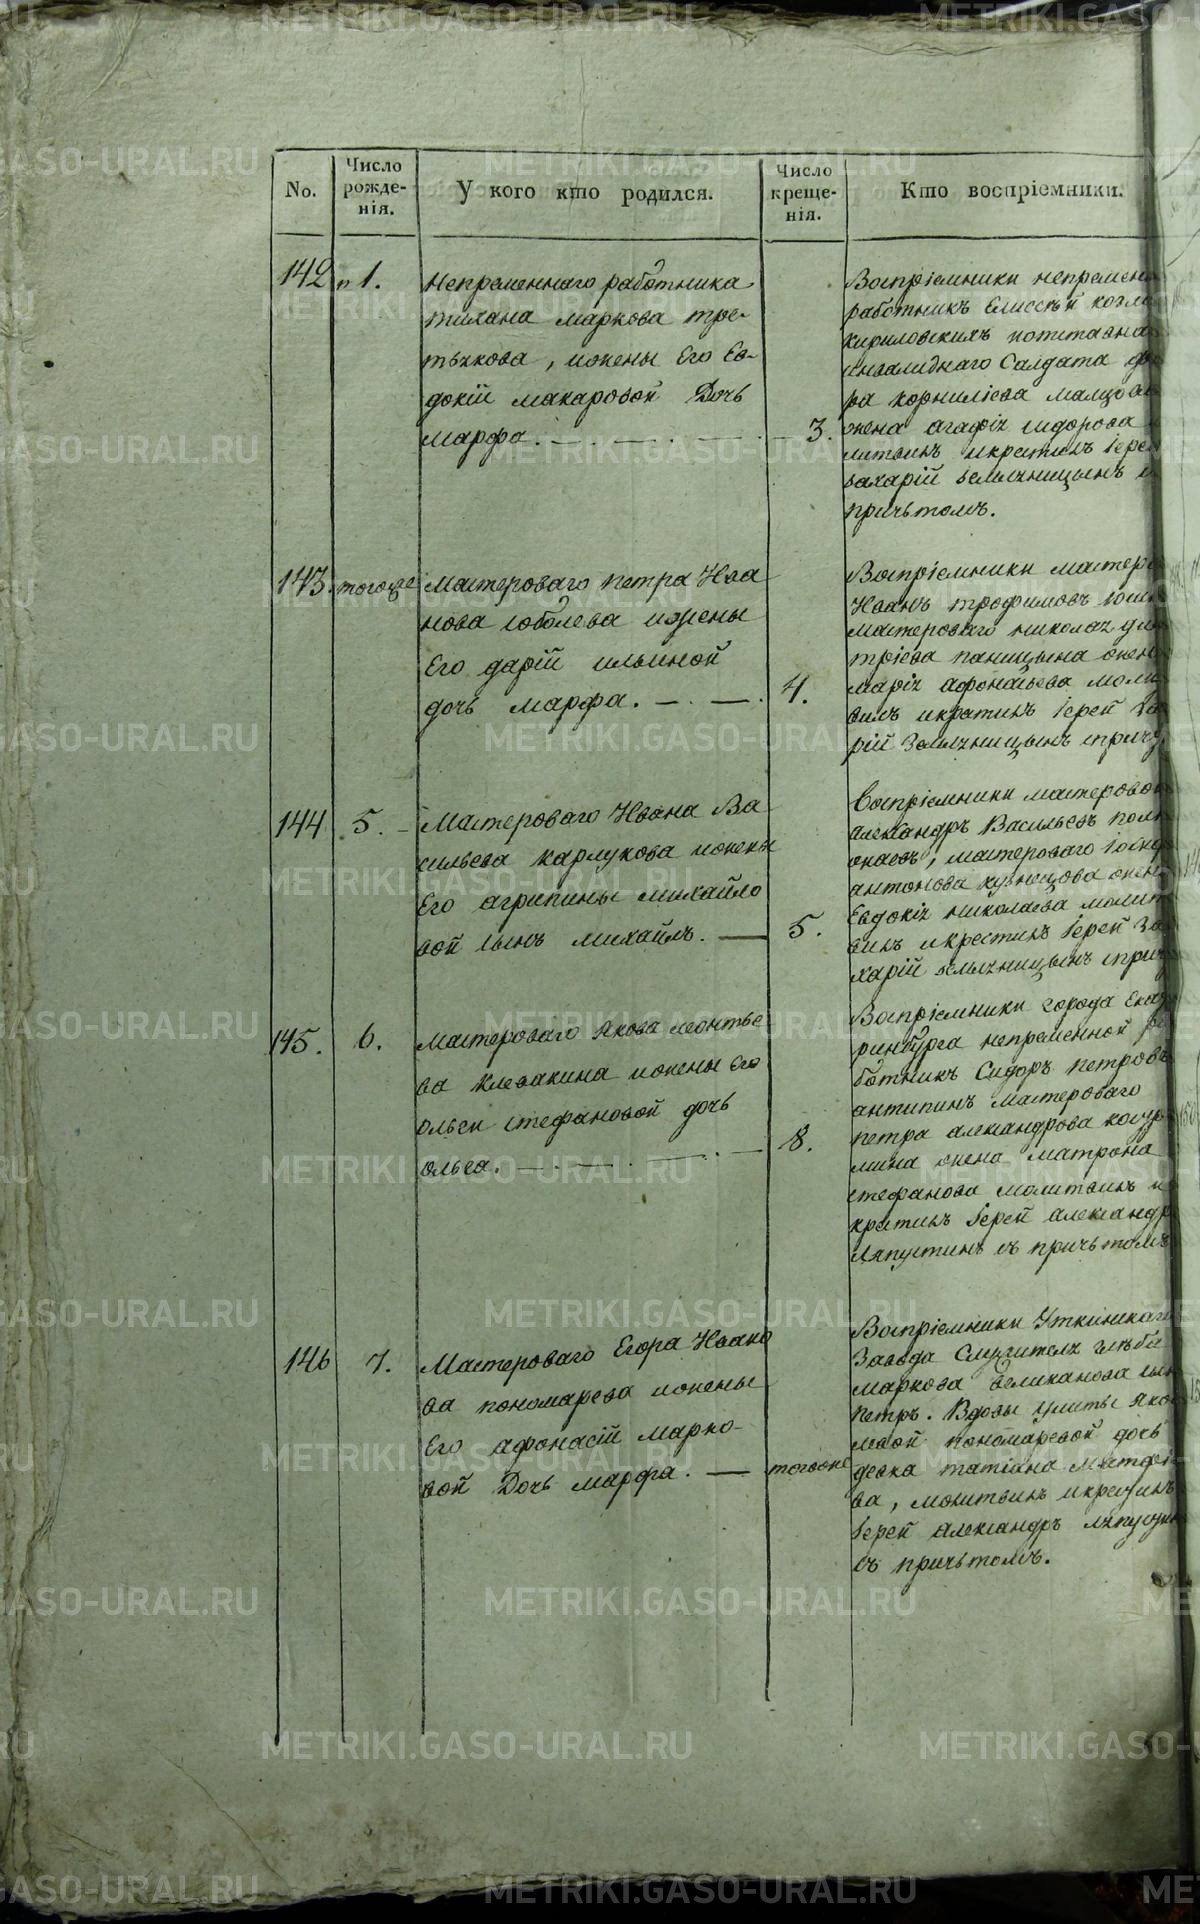 No.
Число рожде-нія.
У кого кто родился.
Число креще-нія.
Кто воспріемники.
142 1.
Непременнаго работника
маркова тре-
тьякова, ижены Его Ев-
докіи макаровой Дочь
марфа. 3.
Воспріемники непремен
работникъ Елисѣй
кириловскихъ
инвалиднаго Салдата
ра корниліева
жена агафія сидорова
литвилъ икрестилъ Іерей
захарій земляницынъ
причьтомъ.
143. тогоже
Мастероваго петра Ива
нова соболева ижены
Его даріи ильиной
дочь марфа. 4.
Воспріемники мастеро
Иванъ трофимовъ
мастероваго николая дми
тріева паницына жена
марія афонасьева моли
вилъ икрестилъ Іерей Заха
рій Земляницынъ спричт
144 5.
Мастероваго Ивана Ва
сильева карлукова ижены
Его агрипины михайло
вой сынъ михайлъ. 5.
Воспріемники мастеровой
александръ Васильевъ
мастероваго
антонова кузнецова жена
Евдокія николаева молит
вилъ икрестилъ Іерей За
харій земляницынъ спричт
145. 6.
мастероваго Якова леонтье
ва клевакина ижены его
ольги стефановой дочь
ольга. 8.
Воспріемники города Екате
ринбурга непременной ра
ботникъ Сидоръ петровъ
антипинъ мастероваго
петра александрова
мина жена матрона
стефанова молитвилъ и
крестилъ Іерей александръ
Ляпустинъ съ причьтомъ
146 7.
Мастероваго Егора Ивано
ва пономарева ижены
Его афонасіи марко-
вой Дочь марфа. тогоже
Воспріемники Уткинскаго
Завода Служителя глѣба
маркова великанова сынъ
петръ. Вдовы Улиты яков
левой пономаревой дочь
девка татіана матфѣе
ва, молитвилъ икрестилъ
Іерей александръ ляпустинъ
съ причьтомъ.
METRIKI.GASO-URAL.RU